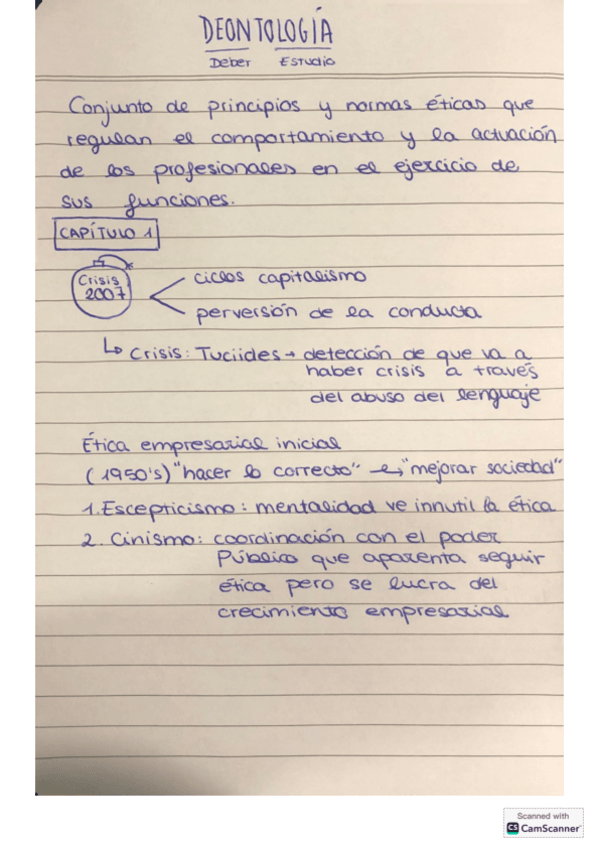 DEONTOLOGÍA
Deber Estudio
Conjunto de principios y normas éticas que
regulan el comportamiento y la actuación
de los profesionales en el ejercicio de
sus funciones.
CAPÍTULO 1
Crisis
2007
ciclos capitalismo
perversión de la conducta
↳ Crisis: Tuciides → detección de que va a
haber crisis a través
del abuso del lenguaje
Ética empresarial inicial
(1950's) "hacer lo correcto" ↪ "mejorar sociedad"
1. Escepticismo: mentalidad ve innutil la ética
2. Cinismo: coordinación con el poder
Público que aparenta seguir
ética pero se lucra del
crecimiento empresarial
Scanned with
CS CamScanner